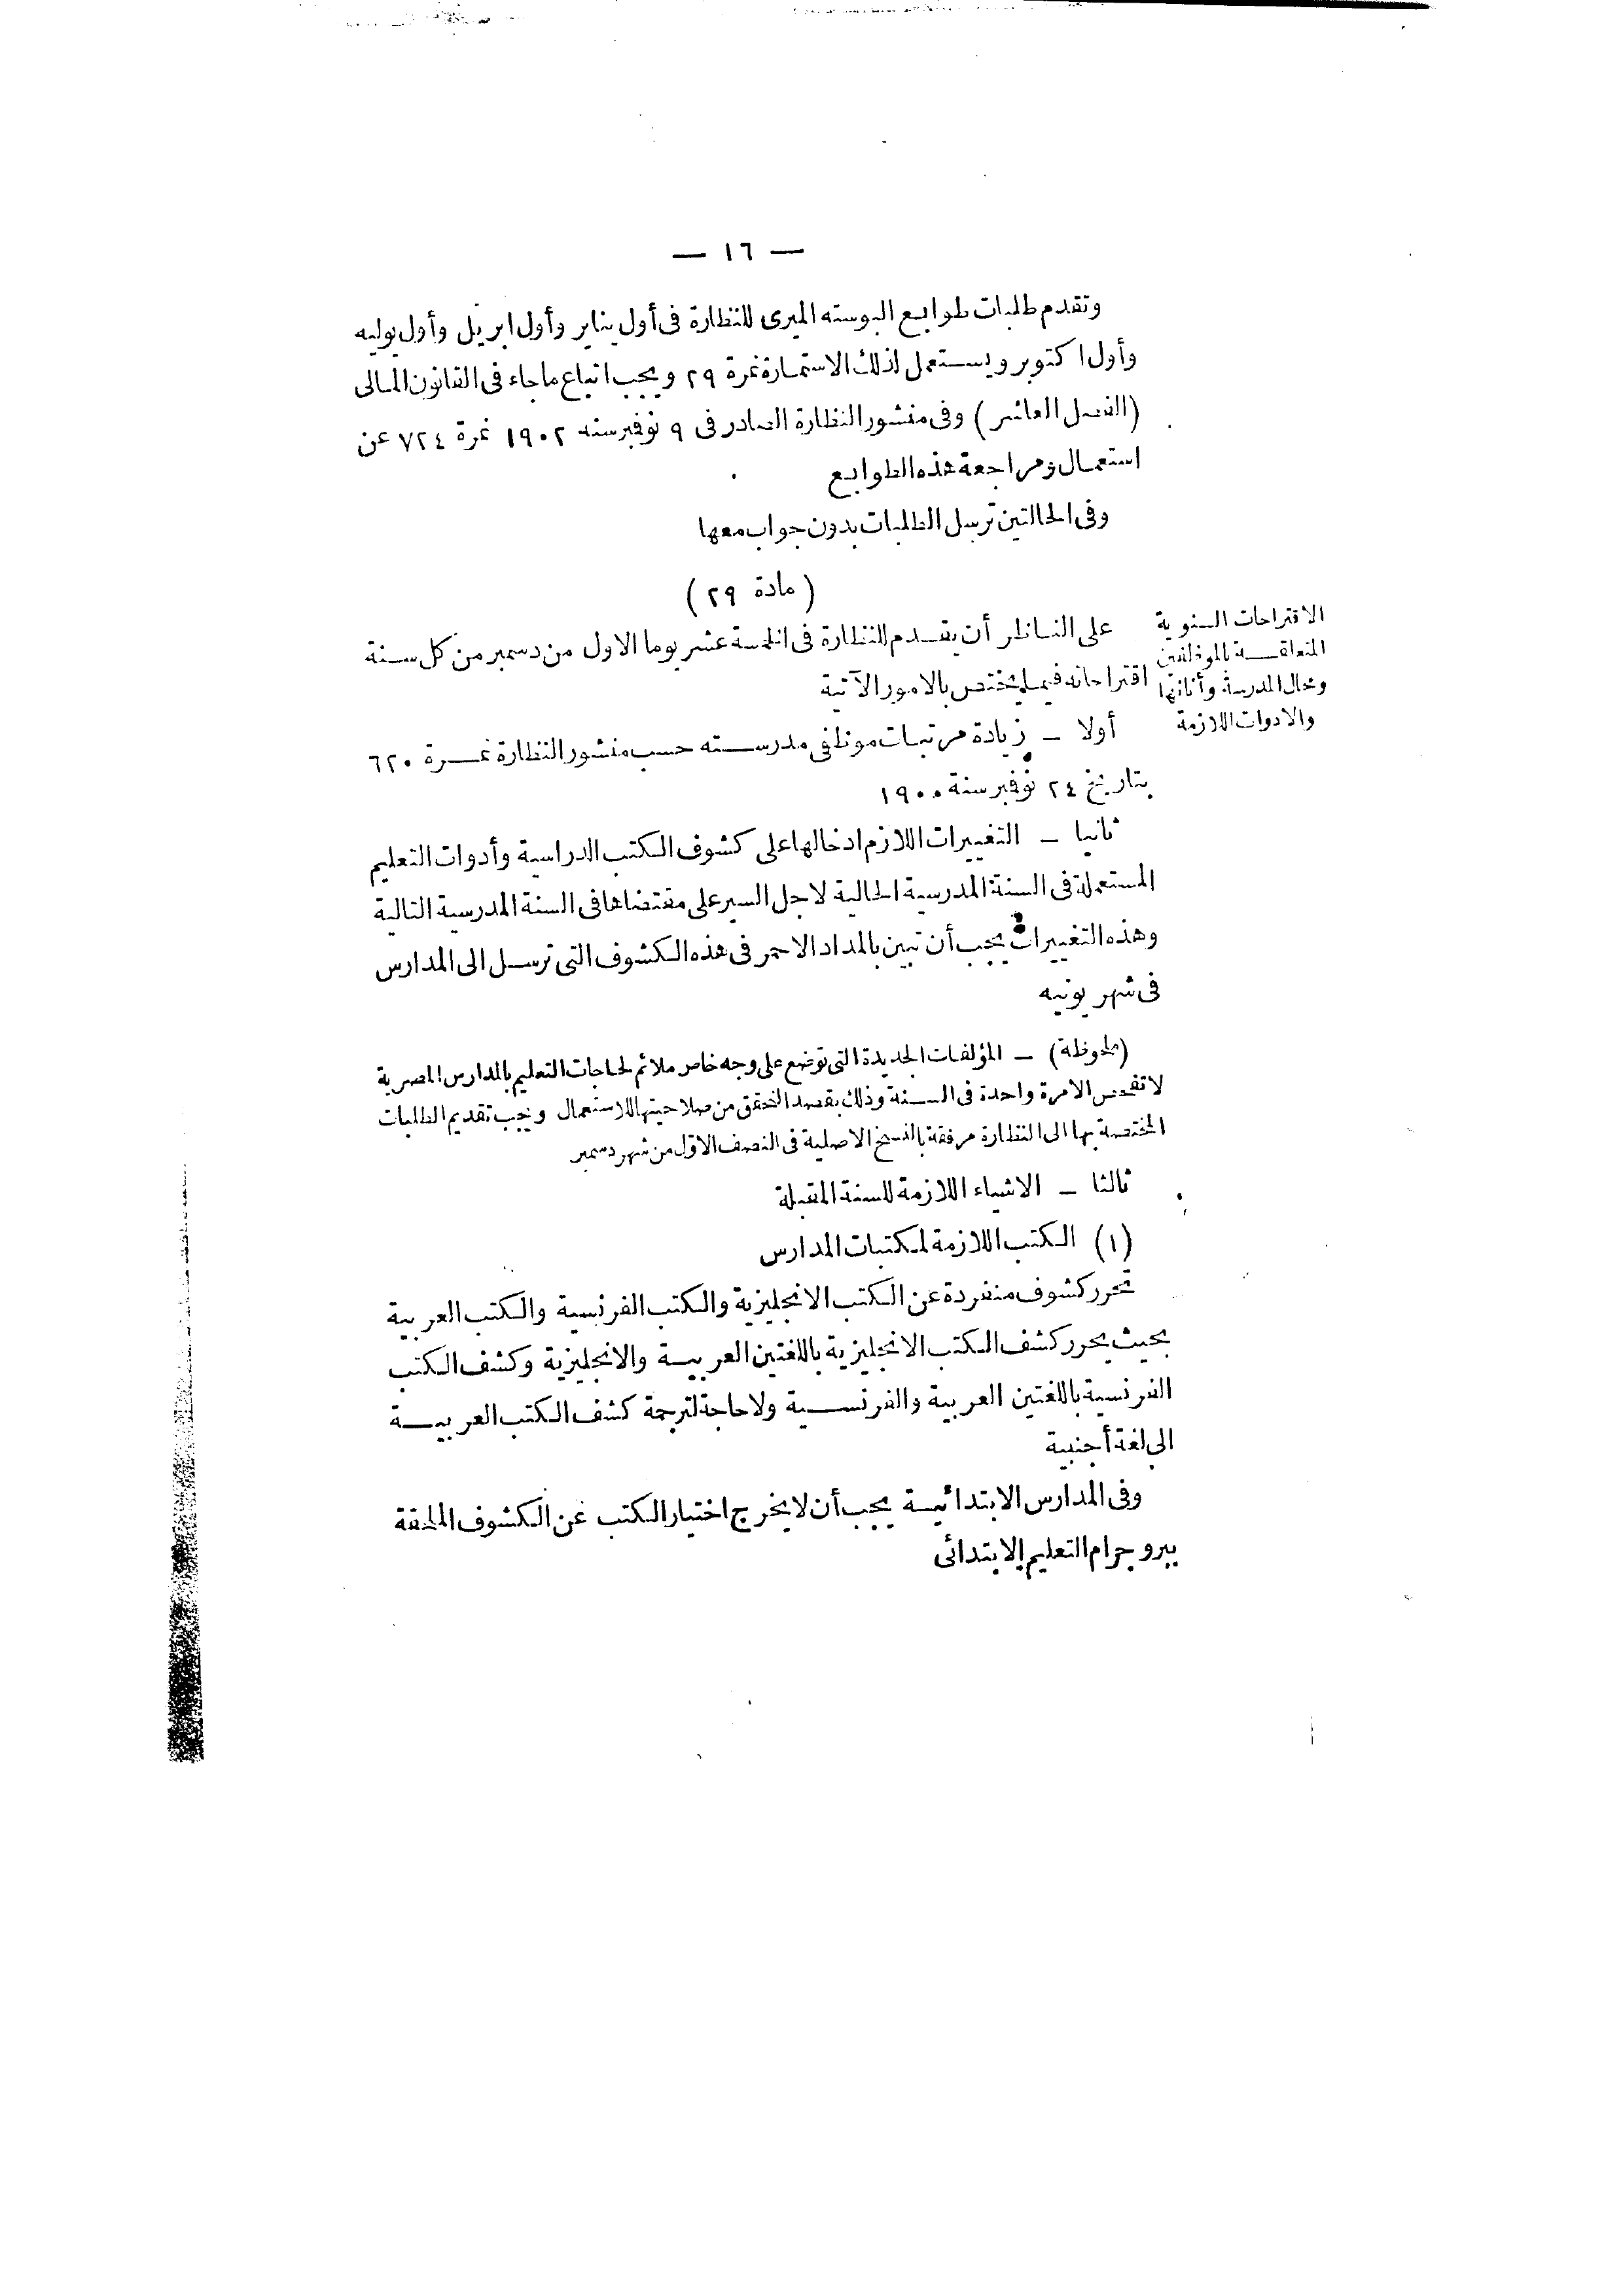 — ١٦ —
وتقدم طلبات طوابع البوسته الميرى للنظارة فى أول يناير وأول ابريل وأول يوليه
وأول اكتوبر ويستعمل لذلك الاستمارة نمرة ٢٩ ويجب اتباع ماجاء فى القانون المالى
(الفصل العاشر) وفى منشور النظارة الصادر فى ٩ نوفمبر سنه ١٩٠٢ نمرة ٧٢٤ عن
استعمال ومراجعة هذه الطوابع
وفى الحالتين ترسل الطلبات بدون جواب معها
(مادة ٢٩)
الاقتراحات السنوية
المتعلقة بالموظفين
ومحال المدرسة وأثاثها
والادوات اللازمة
على الناظر أن يقدم للنظارة فى الخمسة عشر يوما الاول من دسمبر من كل سنة
اقتراحاته فيما يختص بالامور الآتية
أولا — زيادة مرتبات موظفى مدرسته حسب منشور النظارة نمرة ٦٢٠
بتاريخ ٢٤ نوفمبر سنة ١٩٠٠
ثانيا — التغييرات اللازم ادخالها على كشوف الكتب الدراسية وأدوات التعليم
المستعملة فى السنة المدرسية الحالية لاجل السير على مقتضاها فى السنة المدرسية التالية
وهذه التغييرات يجب أن تبين بالمداد الاحمر فى هذه الكشوف التى ترسل الى المدارس
فى شهر يونيه
(ملحوظة) — المؤلفات الجديدة التى توضع على وجه خاص ملائم لحاجات التعليم بالمدارس المصرية
لا تفحص الا مرة واحدة فى السنة وذلك بقصد التحقق من صلاحيتها للاستعمال ويجب تقديم الطلبات
المختصة بها الى النظارة مرفقة بالنسخ الاصلية فى النصف الاول من شهر دسمبر
ثالثا — الاشياء اللازمة للسنة المقبلة
(١) الكتب اللازمة لمكتبات المدارس
تحرر كشوف منفردة عن الكتب الانجليزية والكتب الفرنسية والكتب العربية
بحيث يحرر كشف الكتب الانجليزية باللغتين العربية والانجليزية وكشف الكتب
الفرنسية باللغتين العربية والفرنسية ولا حاجة لترجمة كشف الكتب العربية
الى لغة أجنبية
وفى المدارس الابتدائية يجب أن لا يخرج اختيار الكتب عن الكشوف الملحقة
ببروجرام التعليم الابتدائى